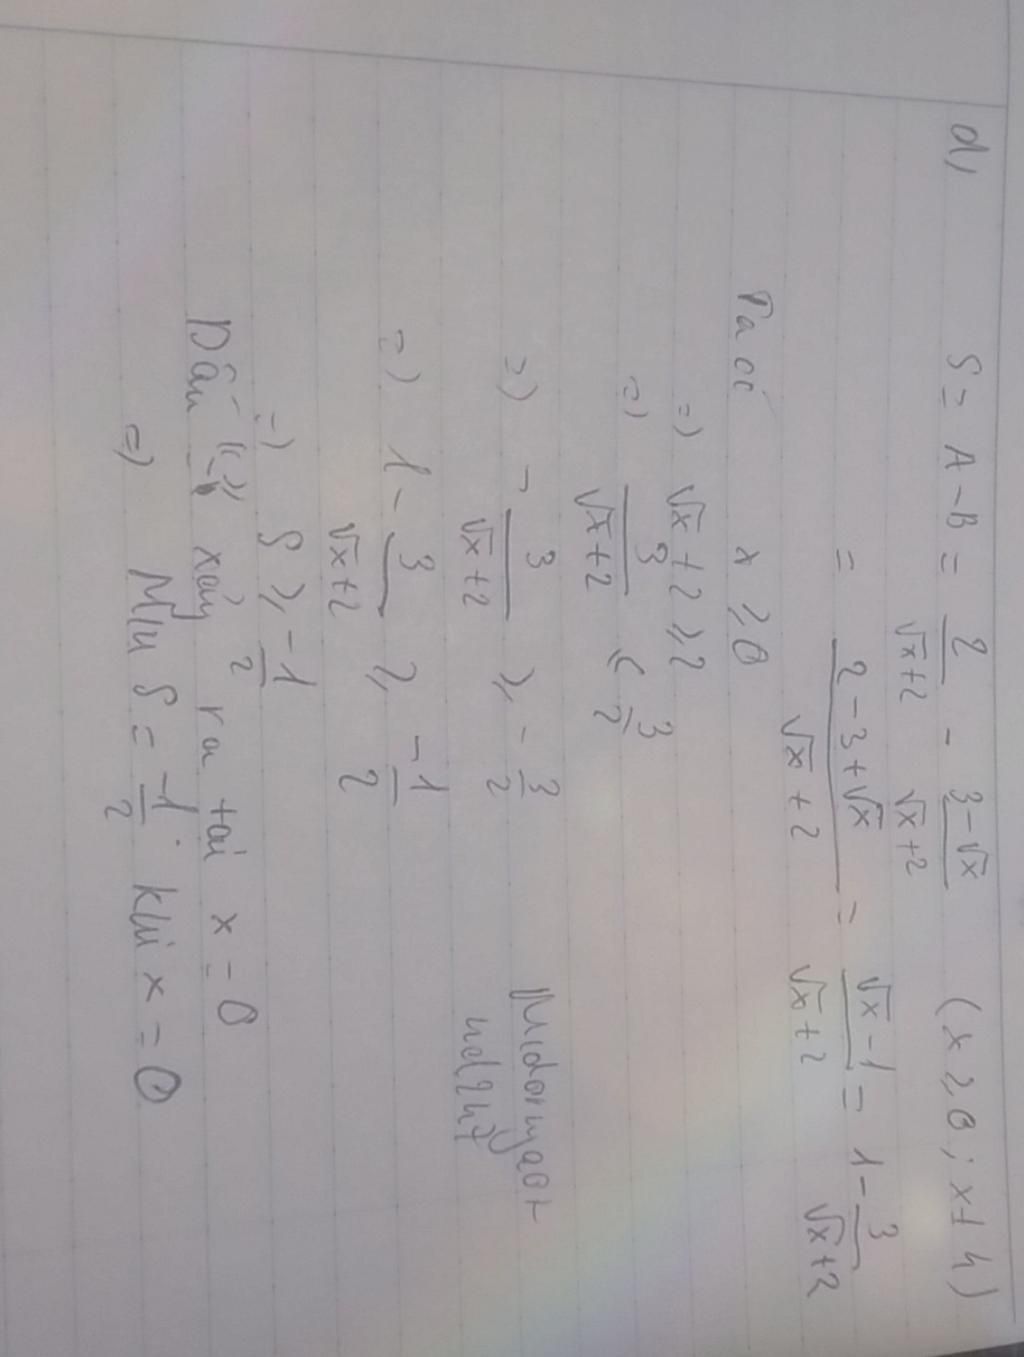 d, S = A - B = 2/(√x+2) - (3-√x)/(√x+2) (x ≥ 0; x ≠ 4)
= (2-3+√x)/(√x+2) = (√x-1)/(√x+2) = 1 - 3/(√x+2)
Ta có x ≥ 0
=) √x+2 ≥ 2
=) 3/(√x+2) ≤ 3/2
=) - 3/(√x+2) ≥ - 3/2
=) 1 - 3/(√x+2) ≥ -1/2
=) S ≥ -1/2
Dấu "=" xảy ra tại x = 0
=) Min S = -1/2 khi x = 0